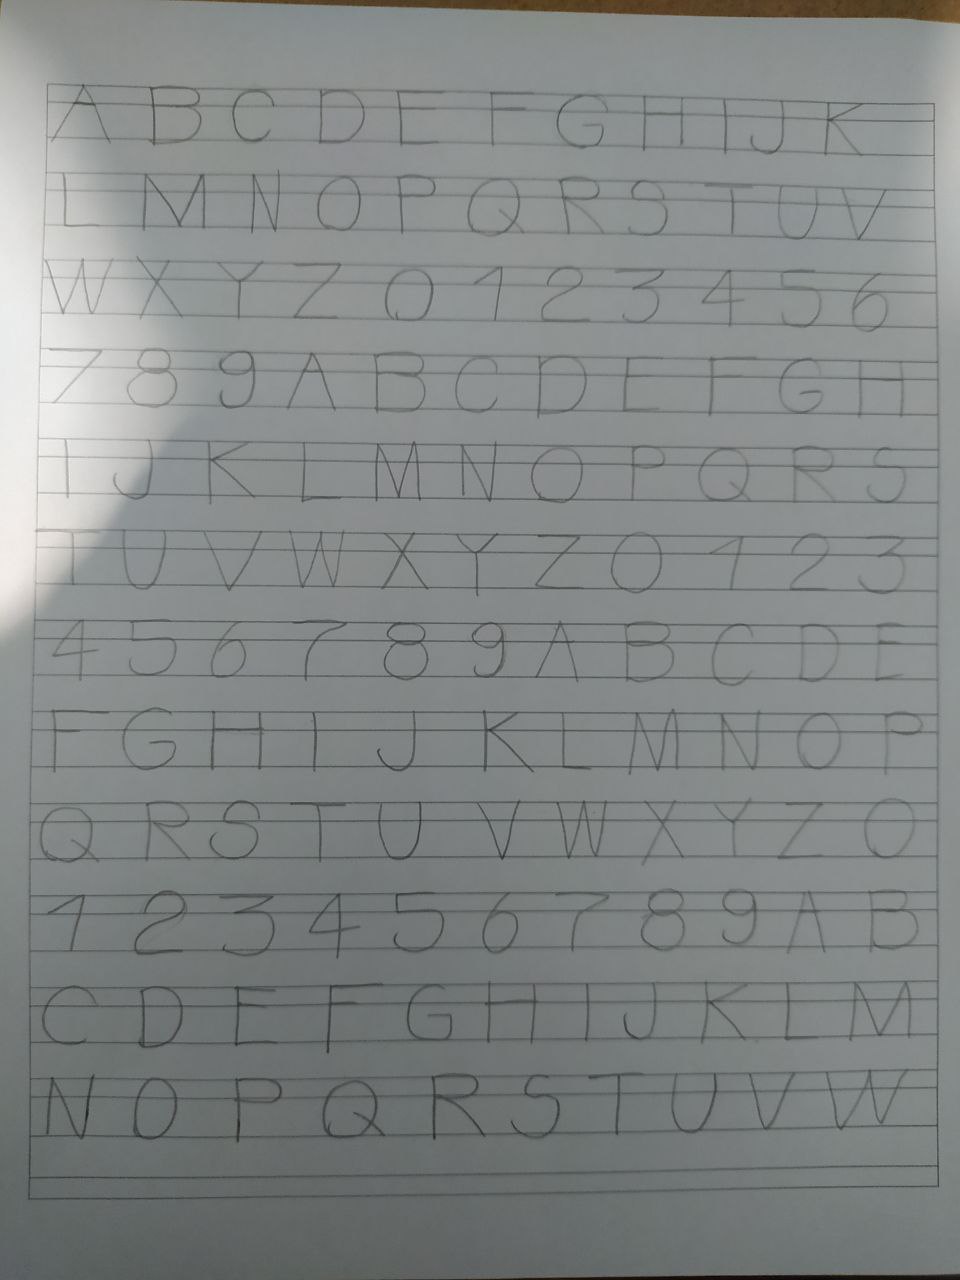 A B C D E F G H I J K
L M N O P Q R S T U V
W X Y Z 0 1 2 3 4 5 6
7 8 9 A B C D E F G H
I J K L M N O P Q R S
T U V W X Y Z 0 1 2 3
4 5 6 7 8 9 A B C D E
F G H I J K L M N O P
Q R S T U V W X Y Z 0
1 2 3 4 5 6 7 8 9 A B
C D E F G H I J K L M
N O P Q R S T U V W